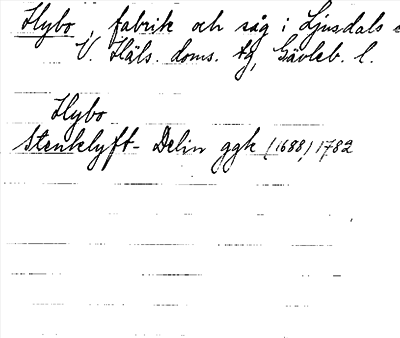 Hybo, fabrik och såg i Ljusdals
V. Häls. doms. tg, Gävleb. l.
Hybo
Stenklyft- Delin ggk (1688) 1782